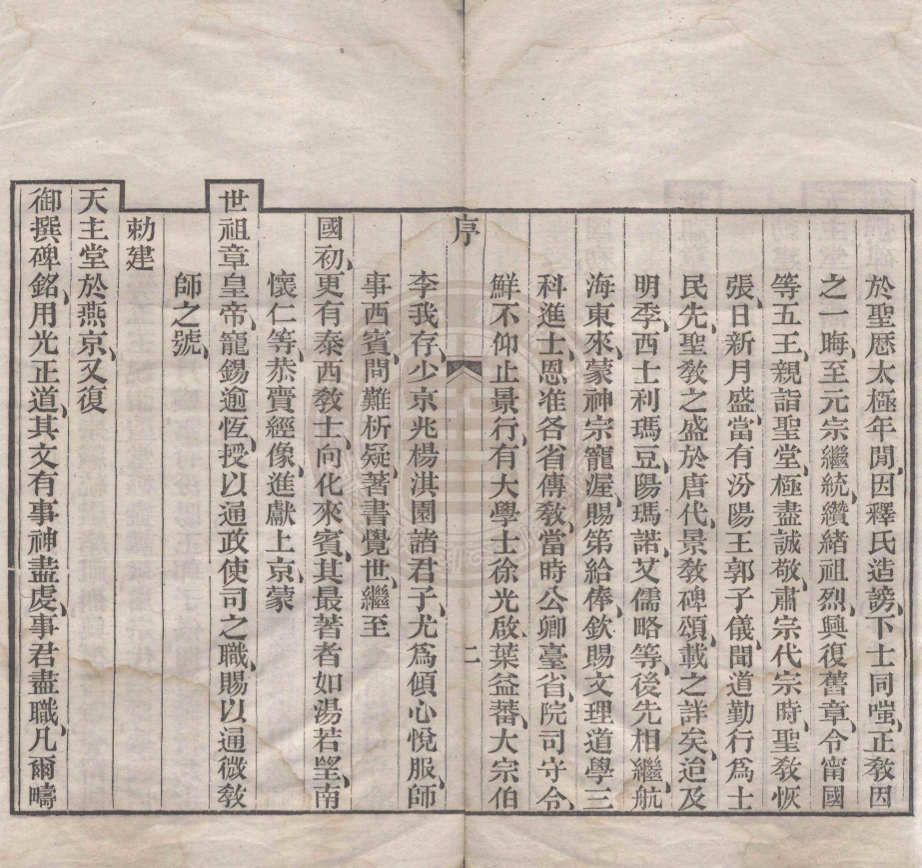 於聖曆太極年閒、因釋氏造謗、下士同嗤、正敎因
之一晦、至元宗繼統、纘緒祖烈、興復舊章、令甯國
等五王、親詣聖堂、極盡誠敬、肅宗代宗時、聖敎恢
張、日新月盛、當有汾陽王郭子儀、聞道勤行、爲士
民先、聖敎之盛於唐代、景敎碑頌、載之詳矣、迨及
明季、西士利瑪豆、陽瑪諾、艾儒略等、後先相繼、航
海東來、蒙神宗寵渥、賜第給俸、欽賜文理道學三
科進士、恩准各省傳敎、當時公卿臺省、院司守令、
鮮不仰止景行、有大學士徐光啟、葉益蕃、大宗伯
序
二
李我存、少京兆楊淇園諸君子、尤爲傾心悅服、師
事西賓、問難析疑、著書覺世、繼至
國初、更有泰西敎士、向化來賓、其最著者如湯若望、南
懷仁等、恭賫經像、進獻上京、蒙
世祖章皇帝、寵錫逾恆、授以通政使司之職、賜以通微敎
師之號、
勅建
天主堂於燕京、又復
御撰碑銘、用光正道、其文有事神盡虔、事君盡職、凡爾疇